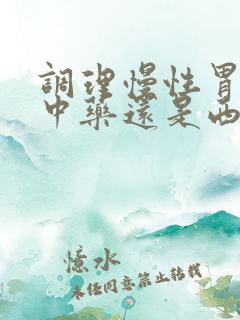 調理慢性胃
中藥還是西
憶水
未任同意禁止轉載